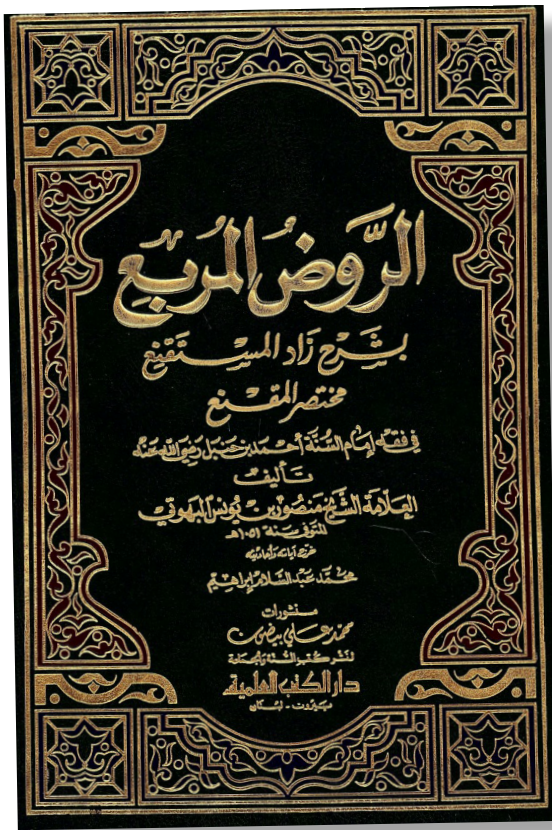 الرَّوضُ المُربِع
بشرح زاد المستقنع
مختصر المقنع
في فقه إمام السُّنَّة أحمد بن حنبل رضي الله عنه
تأليف
العلامة الشيخ منصور بن يونس البهوتي
المتوفى سنة ١٠٥١هـ
خرج آياته وأحاديثه
محمد عبد السلام إبراهيم
منشورات
محمد علي بيضون
لنشر كتب السنة والجماعة
دار الكتب العلمية
بيروت - لبنان